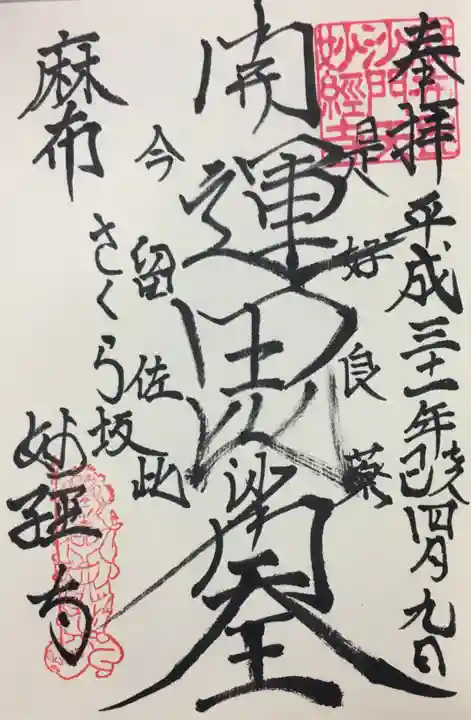 奉拝 平成三十一年己亥四月九日
是好良薬
開運毘沙門天王
今留在此
麻布 さくら坂
妙経寺
沙門天
妙經寺